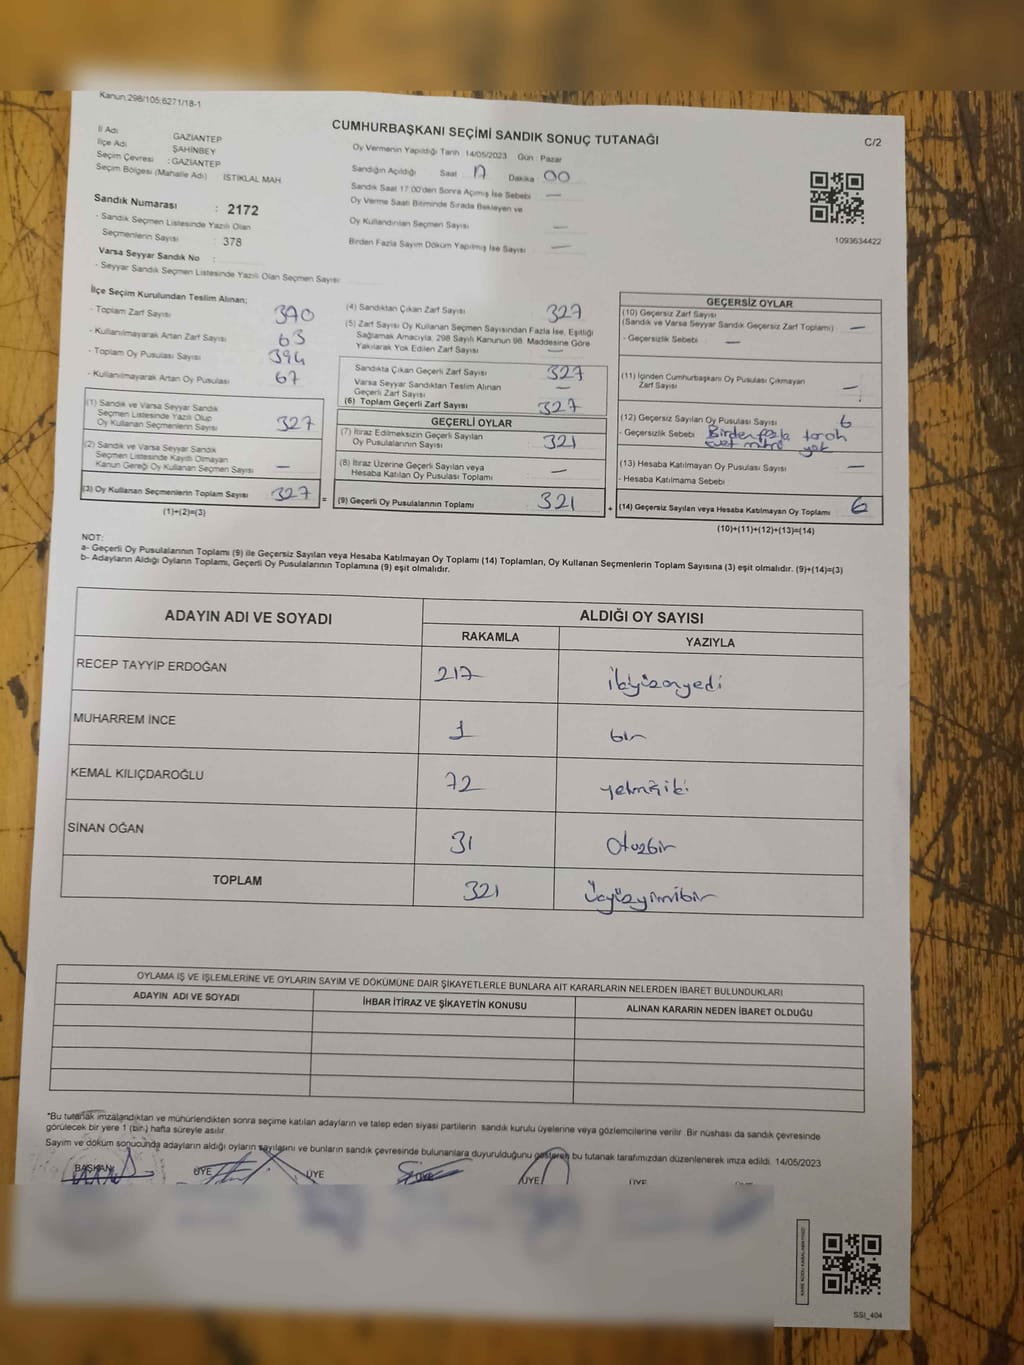 Kanun;298/105;6271/18-1
CUMHURBAŞKANI SEÇİMİ SANDIK SONUÇ TUTANAĞI
C/2
İl Adı GAZIANTEP
İlçe Adı ŞAHİNBEY
Seçim Çevresi : GAZIANTEP
Seçim Bölgesi (Mahalle Adı) ISTIKLAL MAH.
Sandık Numarası : 2172
- Sandık Seçmen Listesinde Yazılı Olan
Seçmenlerin Sayısı : 378
Varsa Seyyar Sandık No :
- Seyyar Sandık Seçmen Listesinde Yazılı Olan Seçmen Sayısı
Oy Vermenin Yapıldığı Tarih 14/05/2023 Gün : Pazar
Sandığın Açıldığı Saat 17 Dakika 00
Sandık Saat 17:00'den Sonra Açılmış İse Sebebi —
Oy Verme Saati Bitiminde Sırada Bekleyen ve
Oy Kullandırılan Seçmen Sayısı —
Birden Fazla Sayım Döküm Yapılmış İse Sayısı —
1093634422
İlçe Seçim Kurulundan Teslim Alınan;
- Toplam Zarf Sayısı 390
- Kullanılmayarak Artan Zarf Sayısı 63
- Toplam Oy Pusulası Sayısı 394
- Kullanılmayarak Artan Oy Pusulası 67
(1) Sandık ve Varsa Seyyar Sandık
Seçmen Listesinde Yazılı Olup
Oy Kullanan Seçmenlerin Sayısı 327
(2) Sandık ve Varsa Seyyar Sandık
Seçmen Listesinde Kayıtlı Olmayan
Kanun Gereği Oy Kullanan Seçmen Sayısı —
(3) Oy Kullanan Seçmenlerin Toplam Sayısı 327 =
(1)+(2)=(3)
(4) Sandıktan Çıkan Zarf Sayısı 327
(5) Zarf Sayısı Oy Kullanan Seçmen Sayısından Fazla İse, Eşitliği
Sağlamak Amacıyla, 298 Sayılı Kanunun 98. Maddesine Göre
Yakılarak Yok Edilen Zarf Sayısı —
Sandıkta Çıkan Geçerli Zarf Sayısı 327
Varsa Seyyar Sandıktan Teslim Alınan
Geçerli Zarf Sayısı —
(6) Toplam Geçerli Zarf Sayısı 327
GEÇERLİ OYLAR
(7) İtiraz Edilmeksizin Geçerli Sayılan
Oy Pusulalarının Sayısı 321
(8) İtiraz Üzerine Geçerli Sayılan veya
Hesaba Katılan Oy Pusulası Toplamı —
(9) Geçerli Oy Pusulalarının Toplamı 321 +
GEÇERSİZ OYLAR
(10) Geçersiz Zarf Sayısı
(Sandık ve Varsa Seyyar Sandık Geçersiz Zarf Toplamı) —
- Geçersizlik Sebebi —
(11) İçinden Cumhurbaşkanı Oy Pusulası Çıkmayan
Zarf Sayısı —
(12) Geçersiz Sayılan Oy Pusulası Sayısı 6
- Geçersizlik Sebebi Birden fazla tercih
evet mührü yok
(13) Hesaba Katılmayan Oy Pusulası Sayısı —
- Hesaba Katılmama Sebebi
(14) Geçersiz Sayılan veya Hesaba Katılmayan Oy Toplamı 6
(10)+(11)+(12)+(13)=(14)
NOT:
a- Geçerli Oy Pusulalarının Toplamı (9) ile Geçersiz Sayılan veya Hesaba Katılmayan Oy Toplamı (14) Toplamları, Oy Kullanan Seçmenlerin Toplam Sayısına (3) eşit olmalıdır. (9)+(14)=(3)
b- Adayların Aldığı Oyların Toplamı, Geçerli Oy Pusulalarının Toplamına (9) eşit olmalıdır.
ADAYIN ADI VE SOYADI
ALDIĞI OY SAYISI
RAKAMLA YAZIYLA
RECEP TAYYİP ERDOĞAN 217 ikiyüzonyedi
MUHARREM İNCE 1 bir
KEMAL KILIÇDAROĞLU 72 yetmişiki
SİNAN OĞAN 31 Otuzbir
TOPLAM 321 Üçyüzyirmibir
OYLAMA İŞ VE İŞLEMLERİNE VE OYLARIN SAYIM VE DÖKÜMÜNE DAİR ŞİKAYETLERLE BUNLARA AİT KARARLARIN NELERDEN İBARET BULUNDUKLARI
ADAYIN ADI VE SOYADI İHBAR İTİRAZ VE ŞİKAYETİN KONUSU ALINAN KARARIN NEDEN İBARET OLDUĞU
*Bu tutanak imzalandıktan ve mühürlendikten sonra seçime katılan adayların ve talep eden siyasi partilerin sandık kurulu üyelerine veya gözlemcilerine verilir. Bir nüshası da sandık çevresinde
görülecek bir yere 1 (bir) hafta süreyle asılır.
Sayım ve döküm sonucunda adayların aldığı oyların sayılarını ve bunların sandık çevresinde bulunanlara duyurulduğunu gösteren bu tutanak tarafımızdan düzenlenerek imza edildi. 14/05/2023
BAŞKAN ÜYE ÜYE ÜYE ÜYE ÜYE
SSI_404